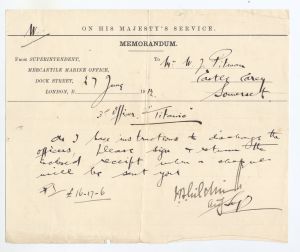 ON HIS MAJESTY'S SERVICE.
MEMORANDUM.
From SUPERINTENDENT,
MERCANTILE MARINE OFFICE,
DOCK STREET,
LONDON, E.
27 June 1912
To Mr W. J. Pitman
Castle Cary
Somerset
3rd Officer "Titanic"
As I have instructions to discharge the
officers, please sign & return the
enclosed receipt when a cheque
will be sent you
£16-17-6